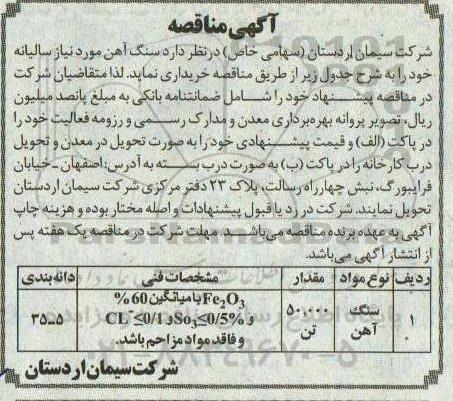 آگهی مناقصه
شرکت سیمان اردستان (سهامی خاص) در نظر دارد سنگ آهن مورد نیاز سالیانه
خود را به شرح جدول زیر از طریق مناقصه خریداری نماید. لذا متقاضیان شرکت
در مناقصه پیشنهاد خود را شامل ضمانتنامه بانکی به مبلغ پانصد میلیون
ریال، تصویر پروانه بهره‌برداری معدن و مدارک رسمی و رزومه فعالیت خود را
در پاکت (الف) و قیمت پیشنهادی خود را به صورت تحویل در معدن و تحویل
درب کارخانه را در پاکت (ب) به صورت درب بسته به آدرس: اصفهان - خیابان
فرایبورگ، نبش چهارراه رسالت، پلاک ۲۳ دفتر مرکزی شرکت سیمان اردستان
تحویل نمایند. شرکت در رد یا قبول پیشنهادات واصله مختار بوده و هزینه چاپ
آگهی به عهده برنده مناقصه می‌باشد. مهلت شرکت در مناقصه یک هفته پس
از انتشار آگهی می‌باشد.
ردیف نوع مواد مقدار مشخصات فنی دانه‌بندی
۱ سنگ آهن ۵۰,۰۰۰ تن Fe2O3 با میانگین 60 %
و So3≤0/5% و CL ≤0/1
و فاقد مواد مزاحم باشد. ۵-۳۵
شرکت سیمان اردستان
۰۲۱-۸۸۳۴۹۶۷۰-۵